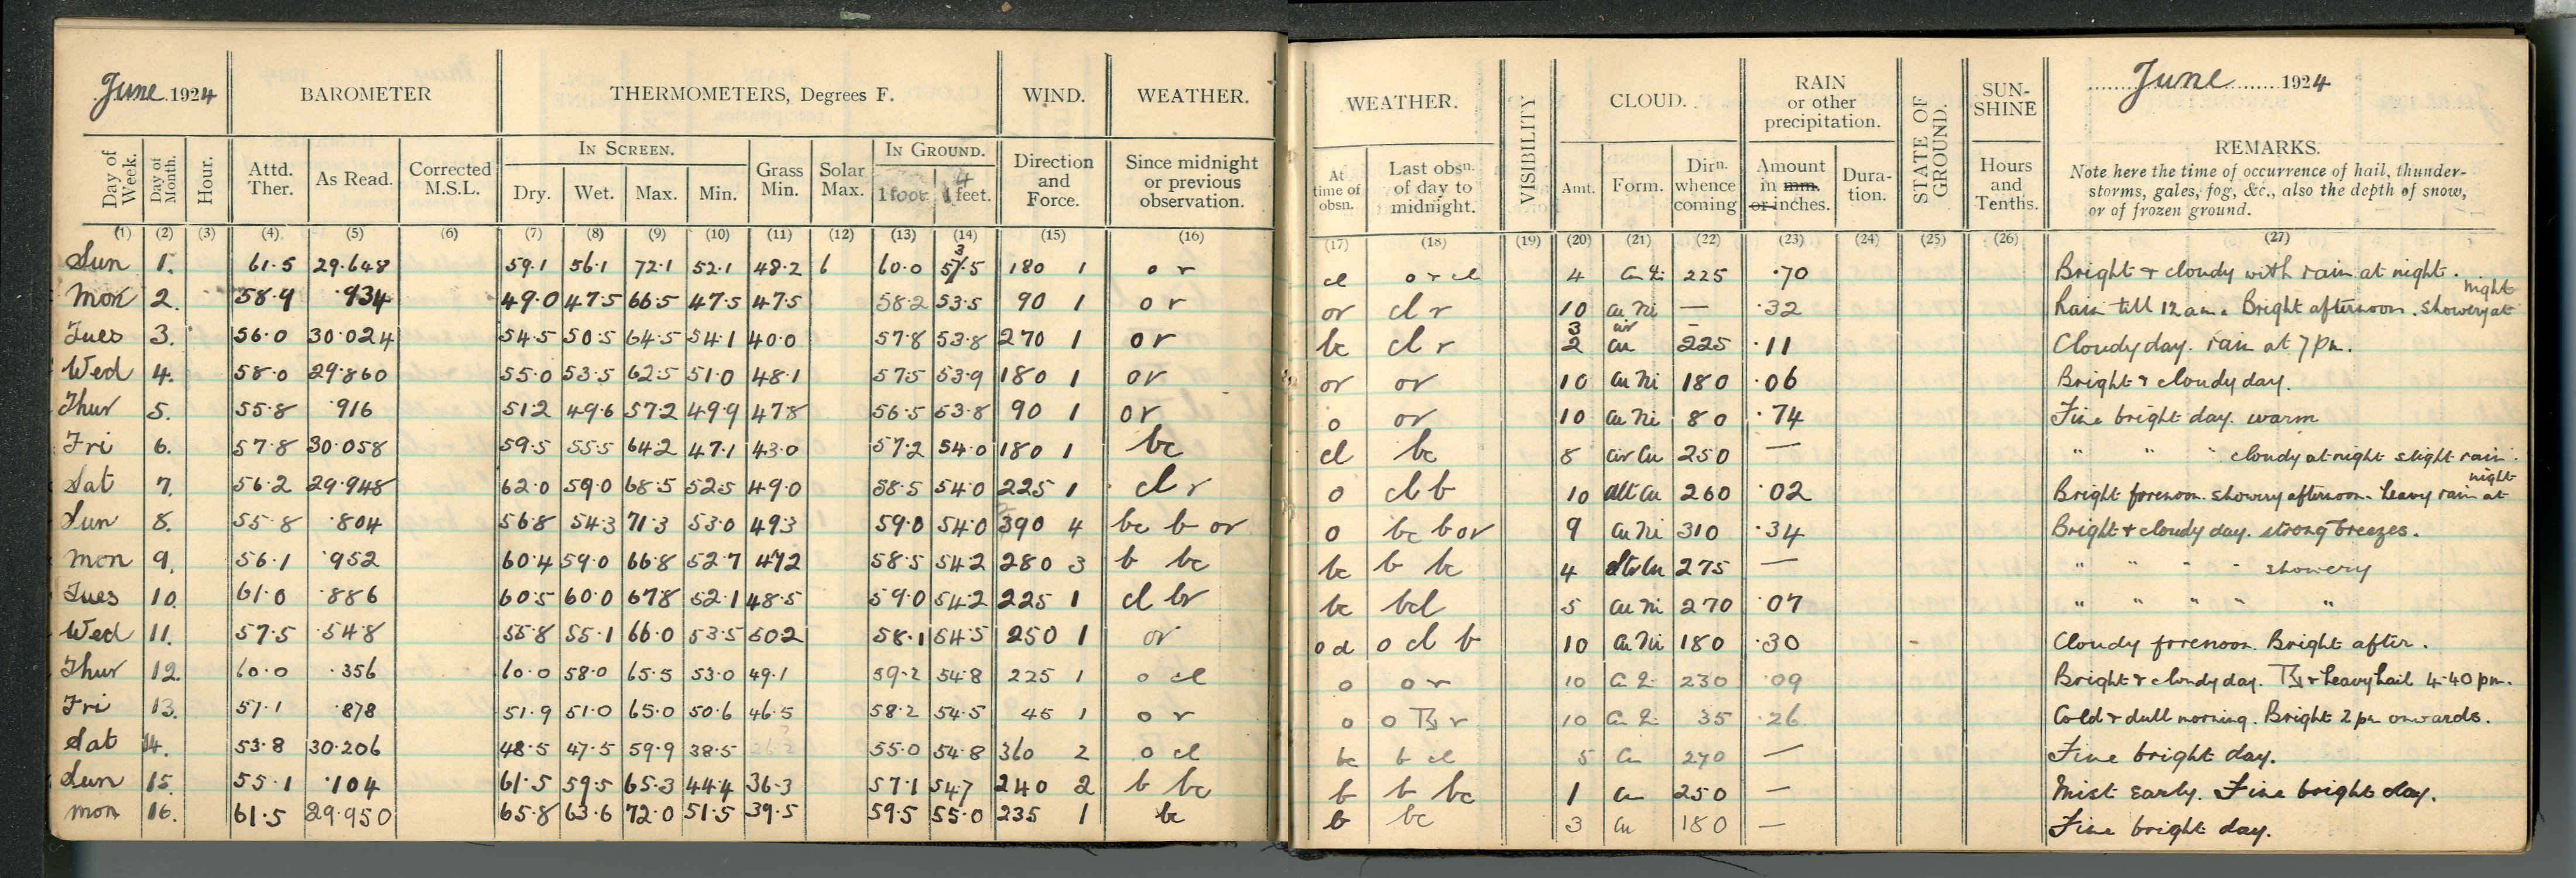 June 1924 BAROMETER THERMOMETERS, Degrees F. WIND. WEATHER.
Day of Week. Day of Month. Hour. Attd. Ther. As Read. Corrected M.S.L. IN SCREEN. Dry. Wet. Max. Min. Grass Min. Solar Max. IN GROUND. 1 foot 4 feet. Direction and Force. Since midnight or previous observation.
(1) (2) (3) (4) (5) (6) (7) (8) (9) (10) (11) (12) (13) (14) (15) (16)
Sun 1. 61.5 29.648 59.1 56.1 72.1 52.1 48.2 6 60.0 53.5 180 1 o r
Mon 2. 58.9 .934 49.0 47.5 66.5 47.5 47.5 58.2 53.5 90 1 o r
Tues 3. 56.0 30.024 54.5 50.5 64.5 54.1 40.0 57.8 53.8 270 1 or
Wed 4. 58.0 29.860 55.0 53.5 62.5 51.0 48.1 57.5 53.9 180 1 or
Thur 5. 55.8 .916 51.2 49.6 57.2 49.9 47.8 56.5 53.8 90 1 or
Fri 6. 57.8 30.058 59.5 55.5 64.2 47.1 43.0 57.2 54.0 180 1 bc
Sat 7. 56.2 29.948 62.0 59.0 68.5 52.5 49.0 58.5 54.0 225 1 cl r
Sun 8. 55.8 .804 56.8 54.3 71.3 53.0 49.3 59.0 54.0 390 4 bc b or
Mon 9. 56.1 .952 60.4 59.0 66.8 52.7 47.2 58.5 54.2 280 3 b bc
Tues 10. 61.0 .886 60.5 60.0 67.8 52.1 48.5 59.0 54.2 225 1 cl br
Wed 11. 57.5 .548 55.8 55.1 66.0 53.5 50.2 58.1 54.5 250 1 or
Thur 12. 60.0 .356 60.0 58.0 65.5 53.0 49.1 59.2 54.8 225 1 o cl
Fri 13. 57.1 .878 51.9 51.0 65.0 50.6 46.5 58.2 54.5 45 1 o r
Sat 14. 53.8 30.206 48.5 47.5 59.9 38.5 55.0 54.8 360 2 o cl
Sun 15. 55.1 .104 61.5 59.5 65.3 44.4 36.3 57.1 54.7 240 2 b bc
Mon 16. 61.5 29.950 65.8 63.6 72.0 51.5 39.5 59.5 55.0 235 1 bc
WEATHER. VISIBILITY CLOUD. RAIN or other precipitation. STATE OF GROUND. SUN-SHINE June 1924
At time of obsn. Last obsn. of day to midnight. Amt. Form. Dirn. whence coming Amount in mm. or inches. Dura-tion. Hours and Tenths. REMARKS.
Note here the time of occurrence of hail, thunder-
storms, gales, fog, &c., also the depth of snow,
or of frozen ground.
(17) (18) (19) (20) (21) (22) (23) (24) (25) (26) (27)
cl o r cl 4 225 .70 Bright & cloudy with rain at night.
or cl r 10 Cu Ni — .32 Rain till 12 am. Bright afternoon. Showery at night
bc cl r 3 cir – 2 cu 225 .11 Cloudy day. rain at 7 pm.
or or 10 Cu Ni 180 .06 Bright & cloudy day.
o or 10 Cu Ni 80 .74 Fine bright day. warm
cl bc 8 Cir Cu 250 — " " " cloudy at night slight rain.
o cl b 10 alt Cu 260 .02 Bright forenoon. showery afternoon. heavy rain at night
o bc b or 9 Cu Ni 310 .34 Bright & cloudy day. strong breezes.
bc b bc 4 275 — " " " " showery
bc bcl 5 Cu Ni 270 .07 " " " " "
o d o cl b 10 Cu Ni 180 .30 Cloudy forenoon. Bright after.
o o r 10 230 .09 Bright & cloudy day. & heavy hail 4.40 pm.
o o r 10 35 .26 Cold & dull morning. Bright 2 pm onwards.
bc b cl 5 Cu 270 — Fine bright day.
b b bc 1 Cu 250 — Mist early. Fine bright day.
b bc 3 Cu 180 — Fine bright day.